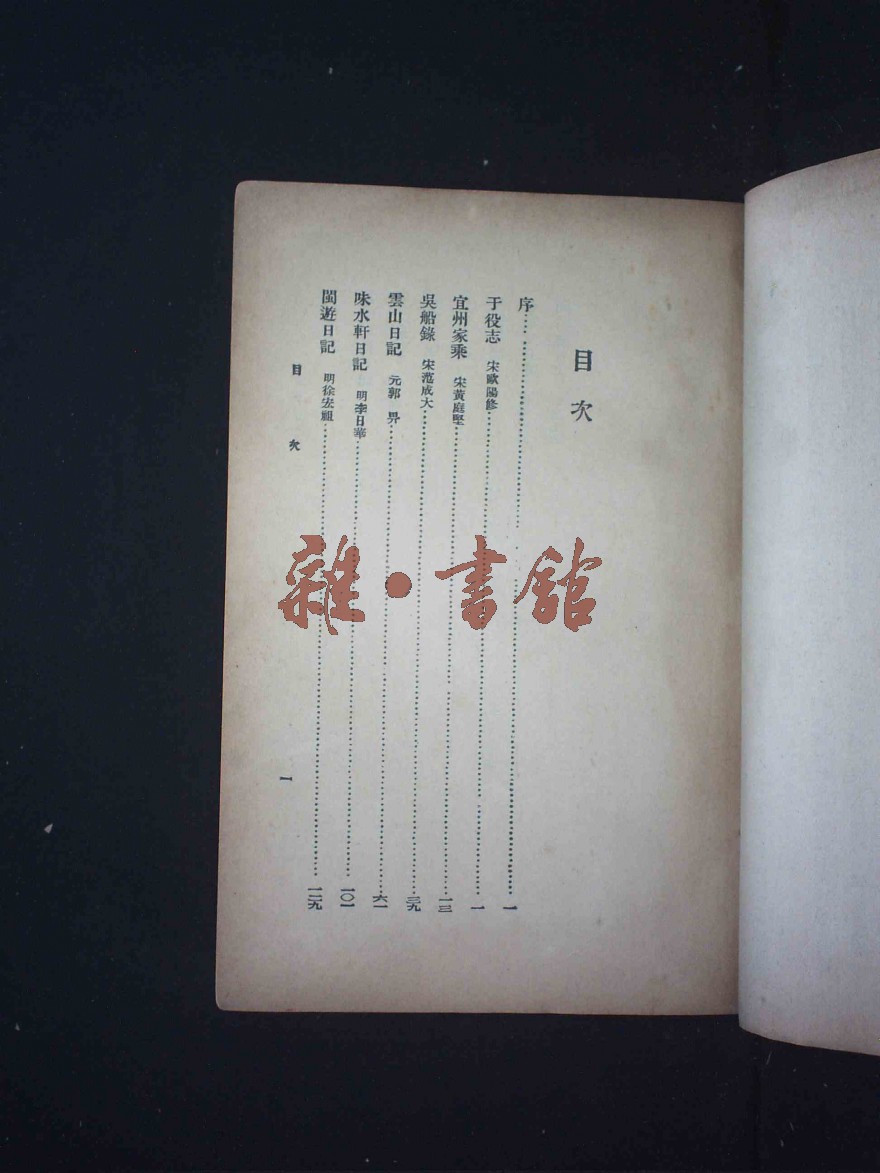 目次
序……一
于役志 宋歐陽修……一
宜州家乘 宋黃庭堅……一三
吳船錄 宋范成大……三九
雲山日記 元郭畀……六一
味水軒日記 明李日華……一〇一
閩遊日記 明徐宏祖……一二九
目次
一
雜·書館